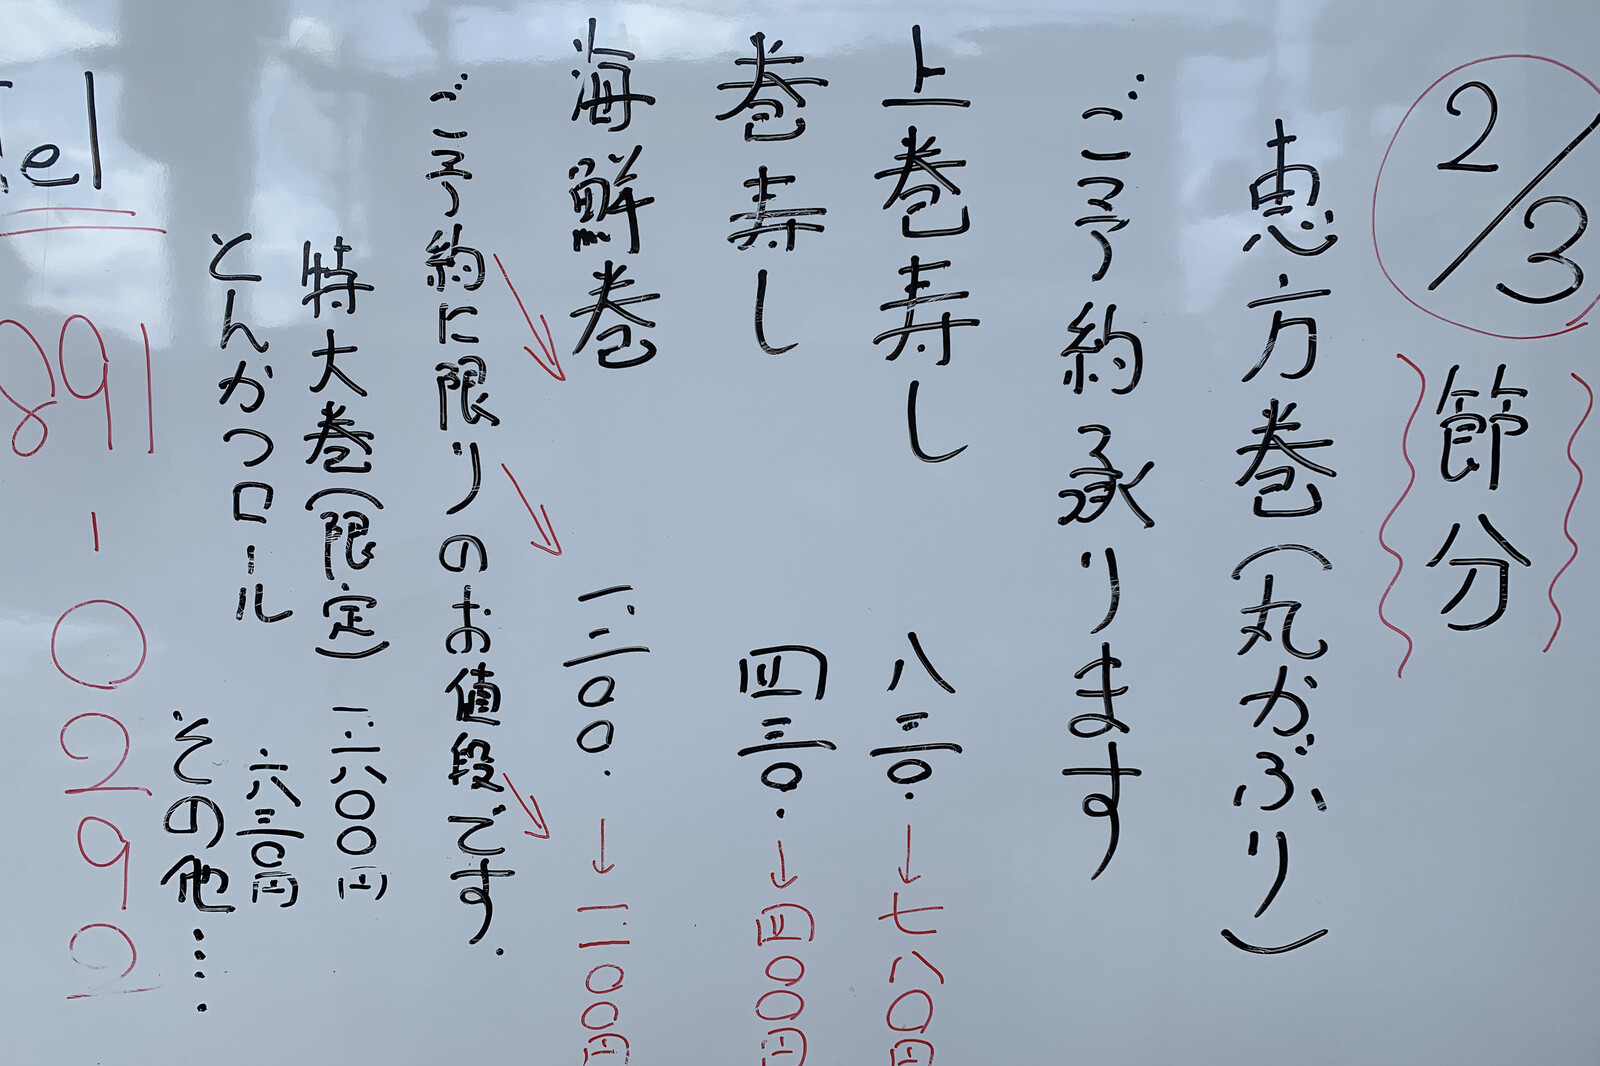 2/3 節分
恵方巻(丸かぶり)
ご予約承ります
上巻寿し 八三〇. →七八〇円
巻寿し 四三〇. →四〇〇円
海鮮巻 一.二〇〇. →一.一〇〇円
ご予約に限りのお値段です.
特大巻(限定) 一.六〇〇円
とんかつロール 六三〇円
その他‥‥.
Tel 891-0292